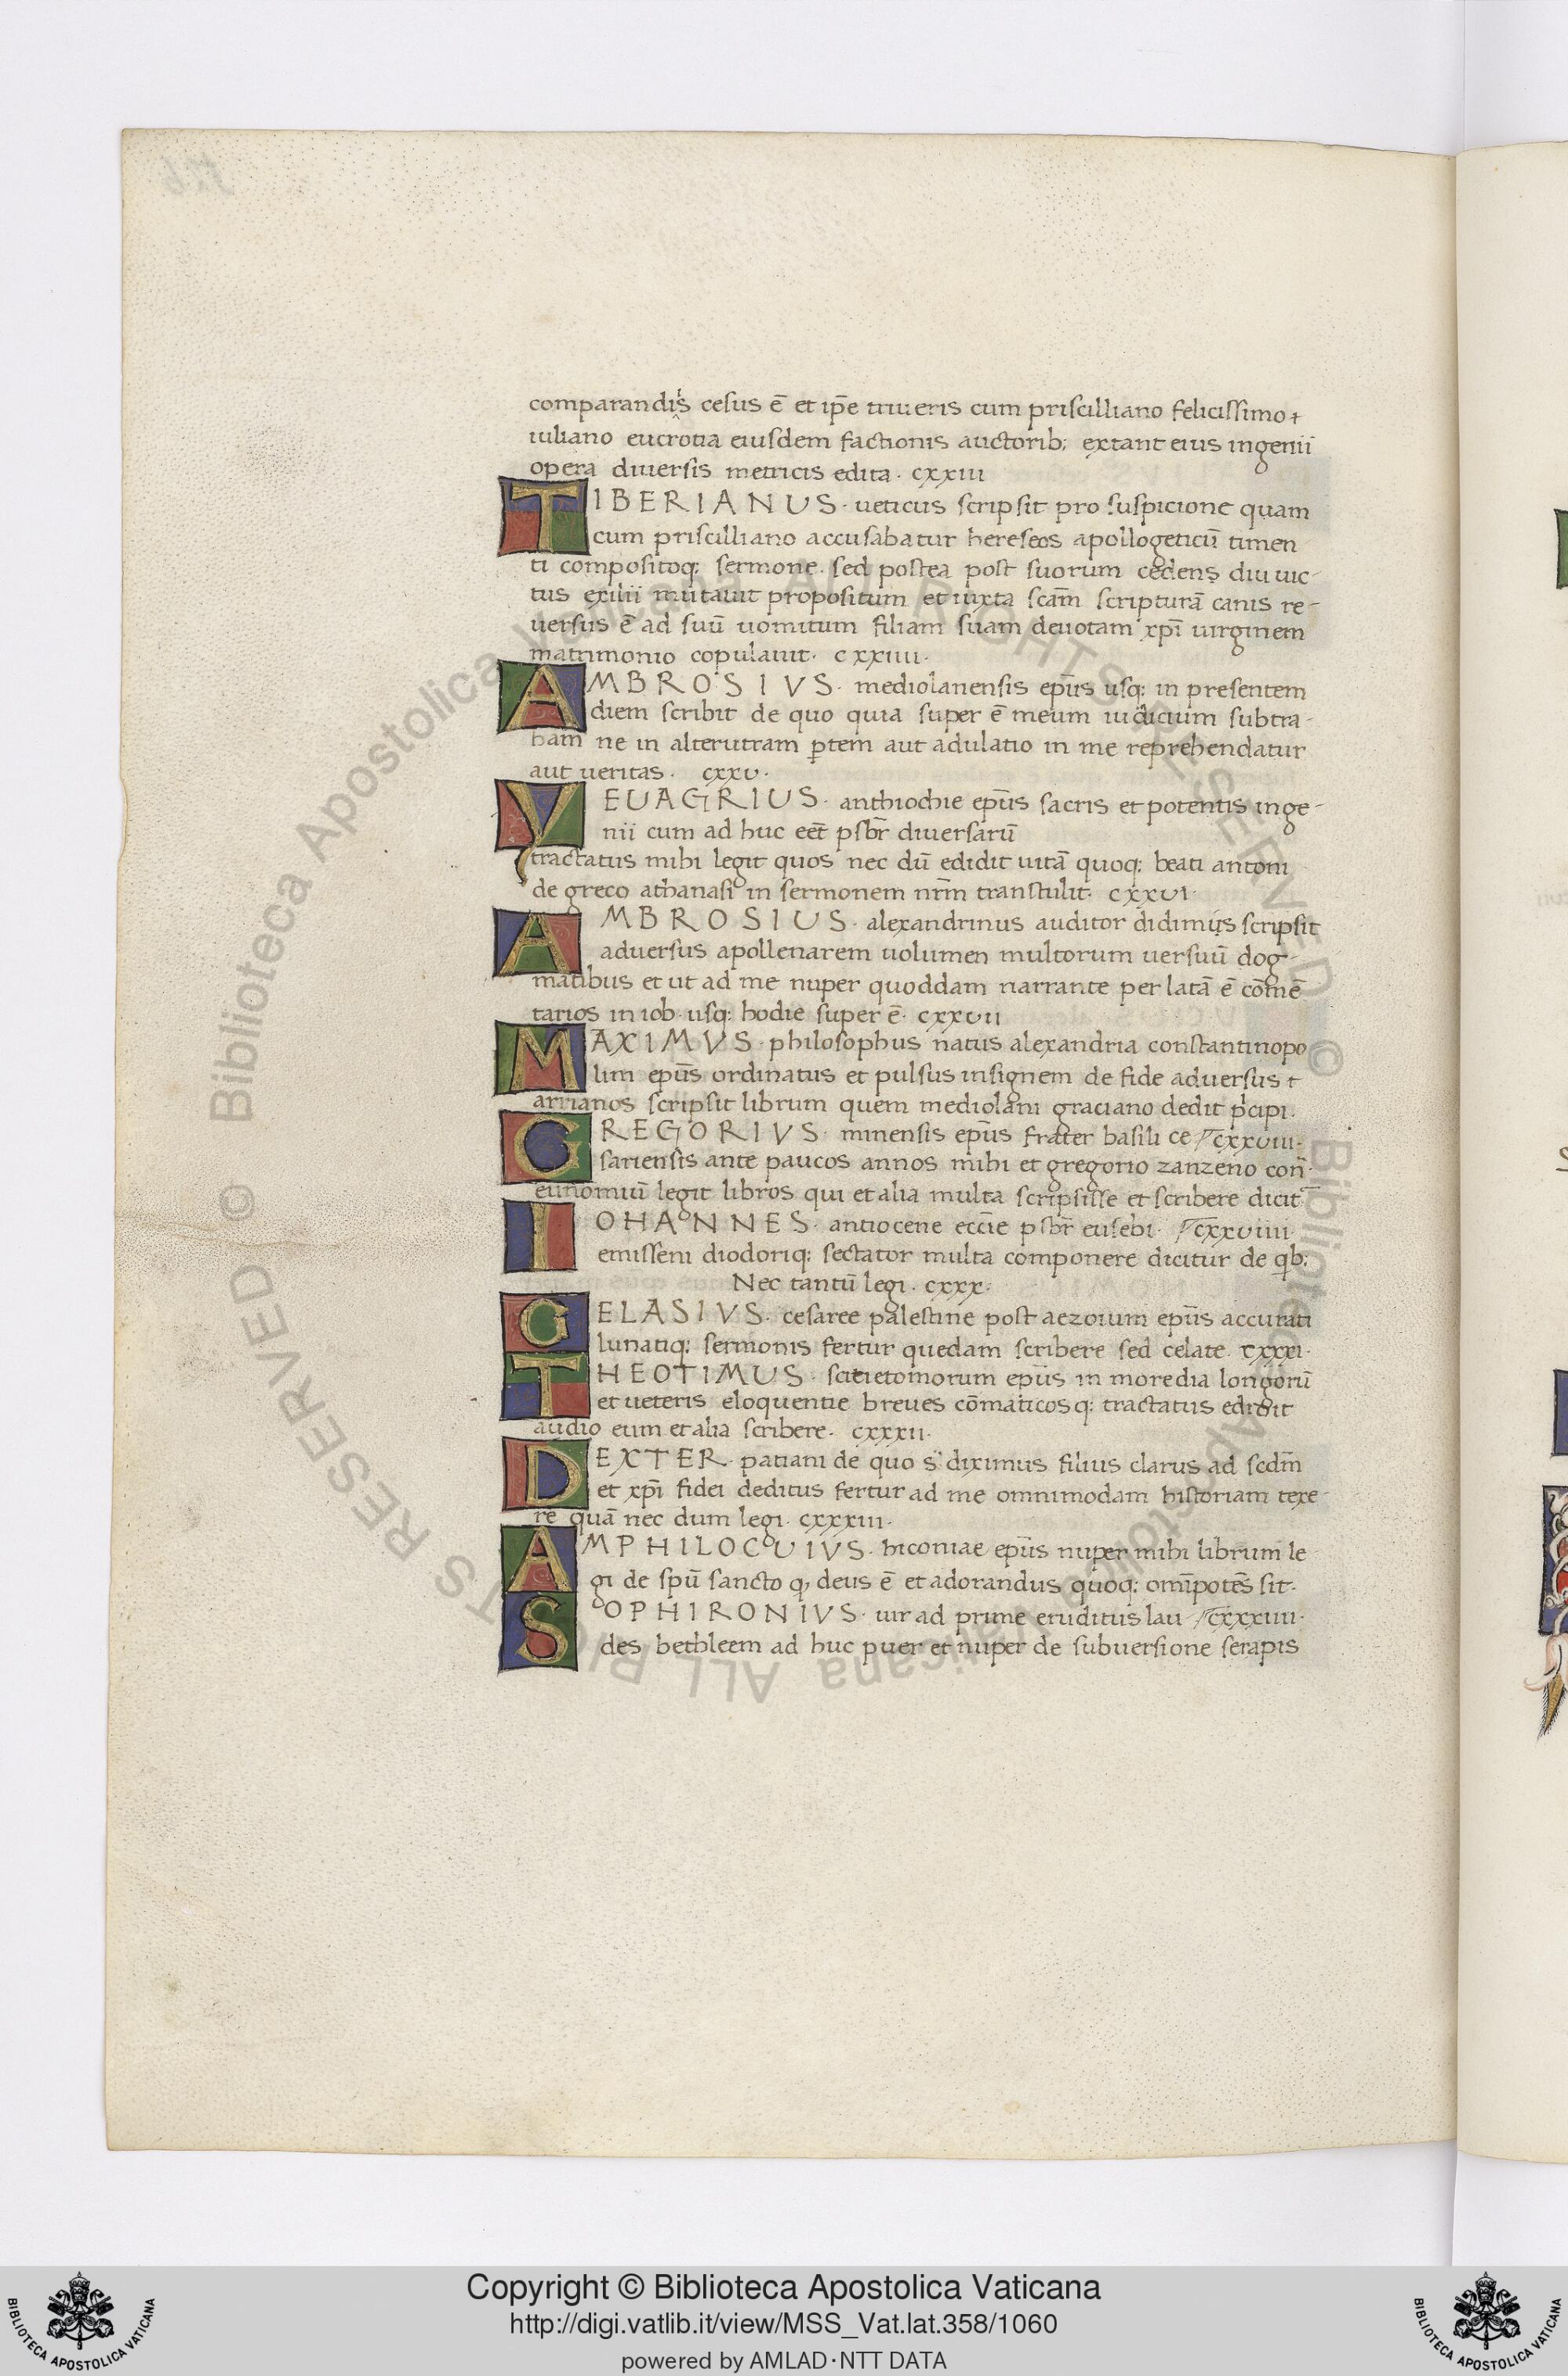 comparandis cesus ē et ip̄e triueris cum priscilliano felicissimo
iuliano eucrotia eiusdem factionis auctorib; extant eius ingenii
opera diuersis metricis edita · cxxiii
TIBERIANUS · ueticus scripsit pro suspicione quam
cum priscilliano accusabatur hereseos apollogeticū timen
ti compositoq: sermone · sed postea post suorum cedens diu uic-
tus exilii mutauit propositum et iuxta scām scripturā canis re-
uersus ē ad suū uomitum filiam suam deuotam xp̄i uirginem
matrimonio copulauit · cxxiiii ·
AMBROSIVS · mediolanensis ep̄us usq: in presentem
diem scribit de quo quia super ē meum iudicium subtra-
ham ne in alterutram ꝑtem aut adulatio in me reprehendatur
aut ueritas · cxxv ·
VEUAGRIUS · anthiochie ep̄us sacris et potentis inge-
nii cum ad huc eēt p̄sbr̄ diuersarū
tractatus mihi legit quos nec dū edidit uitā quoq: beati antoni
de greco athanasi in sermonem nr̄m transtulit · cxxvi ·
AMBROSIUS · alexandrinus auditor didimus scripsit
aduersus apollenarem uolumen multorum uersuū dog-
matibus et ut ad me nuper quoddam narrante per latā ē cōmē
tarios in iob · usq: hodie super ē · cxxvii
MAXIMVS · philosophus natus alexandria constantinopo
lim ep̄us ordinatus et pulsus insignem de fide aduersus
arrianos scripsit librum quem mediolani graciano dedit pⁱcipi ·
GREGORIVS · minensis ep̄us frater basili ce cxxviii ·
sariensis ante paucos annos mihi et gregorio zanzeno con̄ ·
eunomiū legit libros qui et alia multa scripsisse et scribere dicit̄
IOHANNES · antiocene ecc̄ie p̄sbr̄ eusebi · cxxviiii
emisseni diodoriq: sectator multa componere dicitur de qb;
Nec tantū legi · cxxx ·
GELASIVS · cesaree palestine post aezoium ep̄us accurati
lunatiq: sermonis fertur quedam scribere sed celate · cxxxi ·
THEOTIMUS · scitietomorum ep̄us in moredia longorū
et ueteris eloquentie breues cōmaticosq: tractatus edidit
audio eum et alia scribere · cxxxii ·
DEXTER · patiani de quo s diximus filius clarus ad scdm̄
et xp̄i fidei deditus fertur ad me omnimodam historiam texe-
re quā nec dum legi · cxxxiii ·
AMPHILOCUIVS · hiconiae ep̄us nuper mihi librum le
gi de sp̄u sancto q, deus ē et adorandus quoq: omīpotēs sit ·
SOPHIRONIVS · uir ad prime eruditus lau cxxxiiii ·
des bethleem ad huc puer et nuper de subuersione serapis
© Biblioteca Apostolica Vaticana ALL RIGHTS RESERVED
© Biblioteca Apostolica Vaticana ALL RIGHTS RESERVED
Copyright © Biblioteca Apostolica Vaticana
http://digi.vatlib.it/view/MSS_Vat.lat.358/1060
powered by AMLAD·NTT DATA
BIBLIOTECA APOSTOLICA VATICANA
BIBLIOTECA APOSTOLICA VATICANA